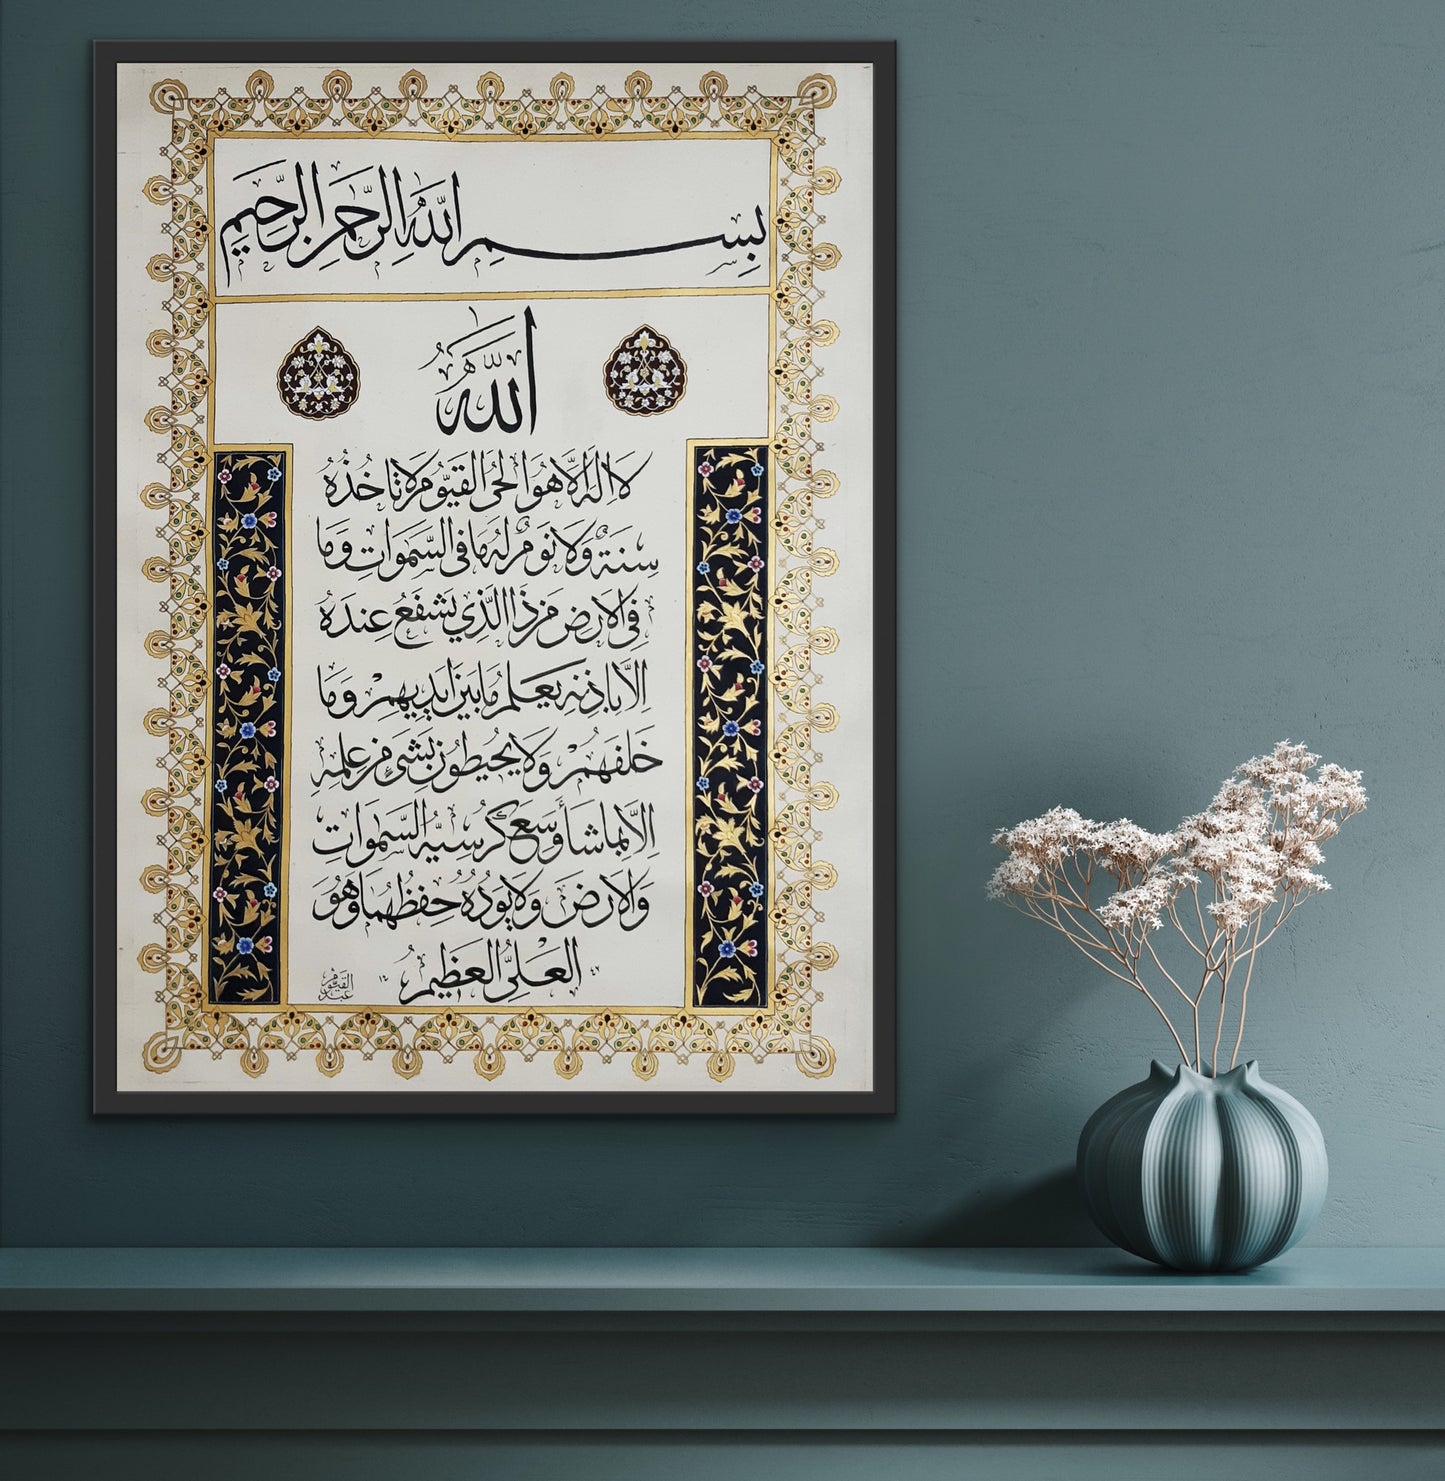 بسم الله الرحمن الرحيم
الله
لا اله الا هو الحي القيوم لا تاخذه
سنة ولا نوم له ما في السموات وما
في الارض من ذا الذي يشفع عنده
الا باذنه يعلم ما بين ايديهم وما
خلفهم ولا يحيطون بشيء من علمه
الا بما شاء وسع كرسيه السموات
والارض ولا يؤده حفظهما وهو
العلي العظيم
عبد القيوم